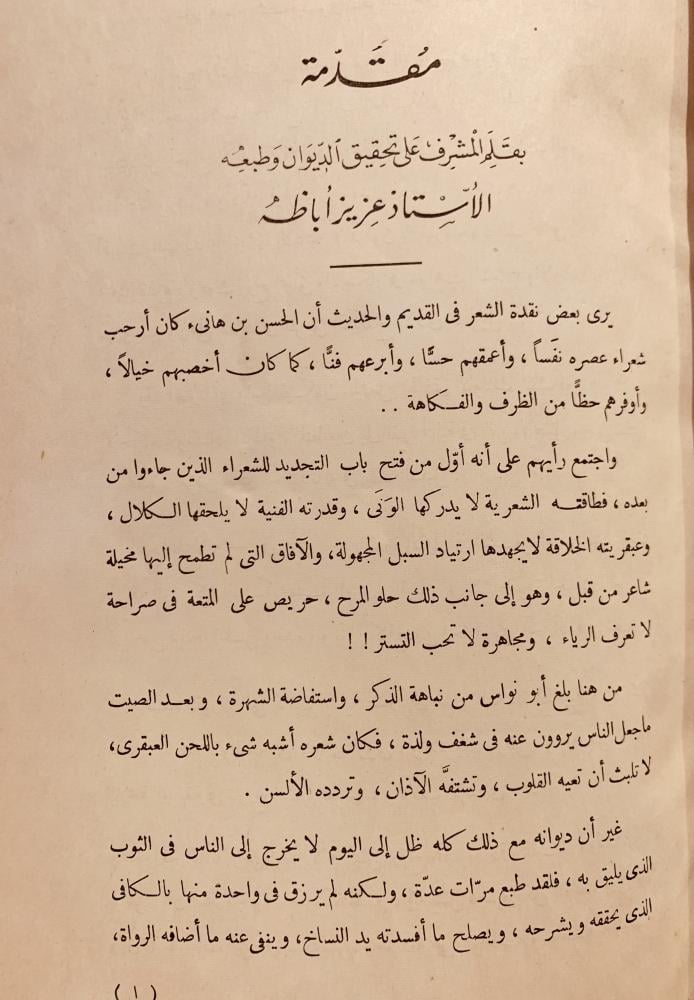 مُقَدِّمة
بقَلَم المشرِف عَلى تحقيق الدّيوَان وَطبعِه
الأستاذ عزيز أباظه
يرى بعض نقدة الشعر فى القديم والحديث أن الحسن بن هانىء كان أرحب
شعراء عصره نفَساً ، وأعمقهم حسًّا ، وأبرعهم فنًّا ، كما كان أخصبهم خيالاً ،
وأوفرهم حظًّا من الظرف والفكاهة . .
واجتمع رأيهم على أنه أوّل من فتح باب التجديد للشعراء الذين جاءوا من
بعده ، فطاقته الشعرية لا يدركها الوَنَى ، وقدرته الفنية لا يلحقها الكلال ،
وعبقريته الخلاقة لا يجهدها ارتياد السبل المجهولة، والآفاق التى لم تطمح إليها مخيلة
شاعر من قبل ، وهو إلى جانب ذلك حلو المرح ، حريص على المتعة فى صراحة
لا تعرف الرياء ، ومجاهرة لا تحب التستر ! !
من هنا بلغ أبو نواس من نباهة الذكر ، واستفاضة الشهرة ، وبعد الصيت
ما جعل الناس يروون عنه فى شغف ولذة ، فكان شعره أشبه شىء باللحن العبقرى،
لا تلبث أن تعيه القلوب ، وتشتفَّه الآذان ، وتردده الألسن .
غير أن ديوانه مع ذلك كله ظل إلى اليوم لا يخرج إلى الناس فى الثوب
الذى يليق به ، فلقد طبع مرّات عدّة ، ولكنه لم يرزق فى واحدة منها بالكافى
الذى يحققه ويشرحه ، ويصلح ما أفسدته يد النساخ، وينفى عنه ما أضافه الرواة،
( ا )